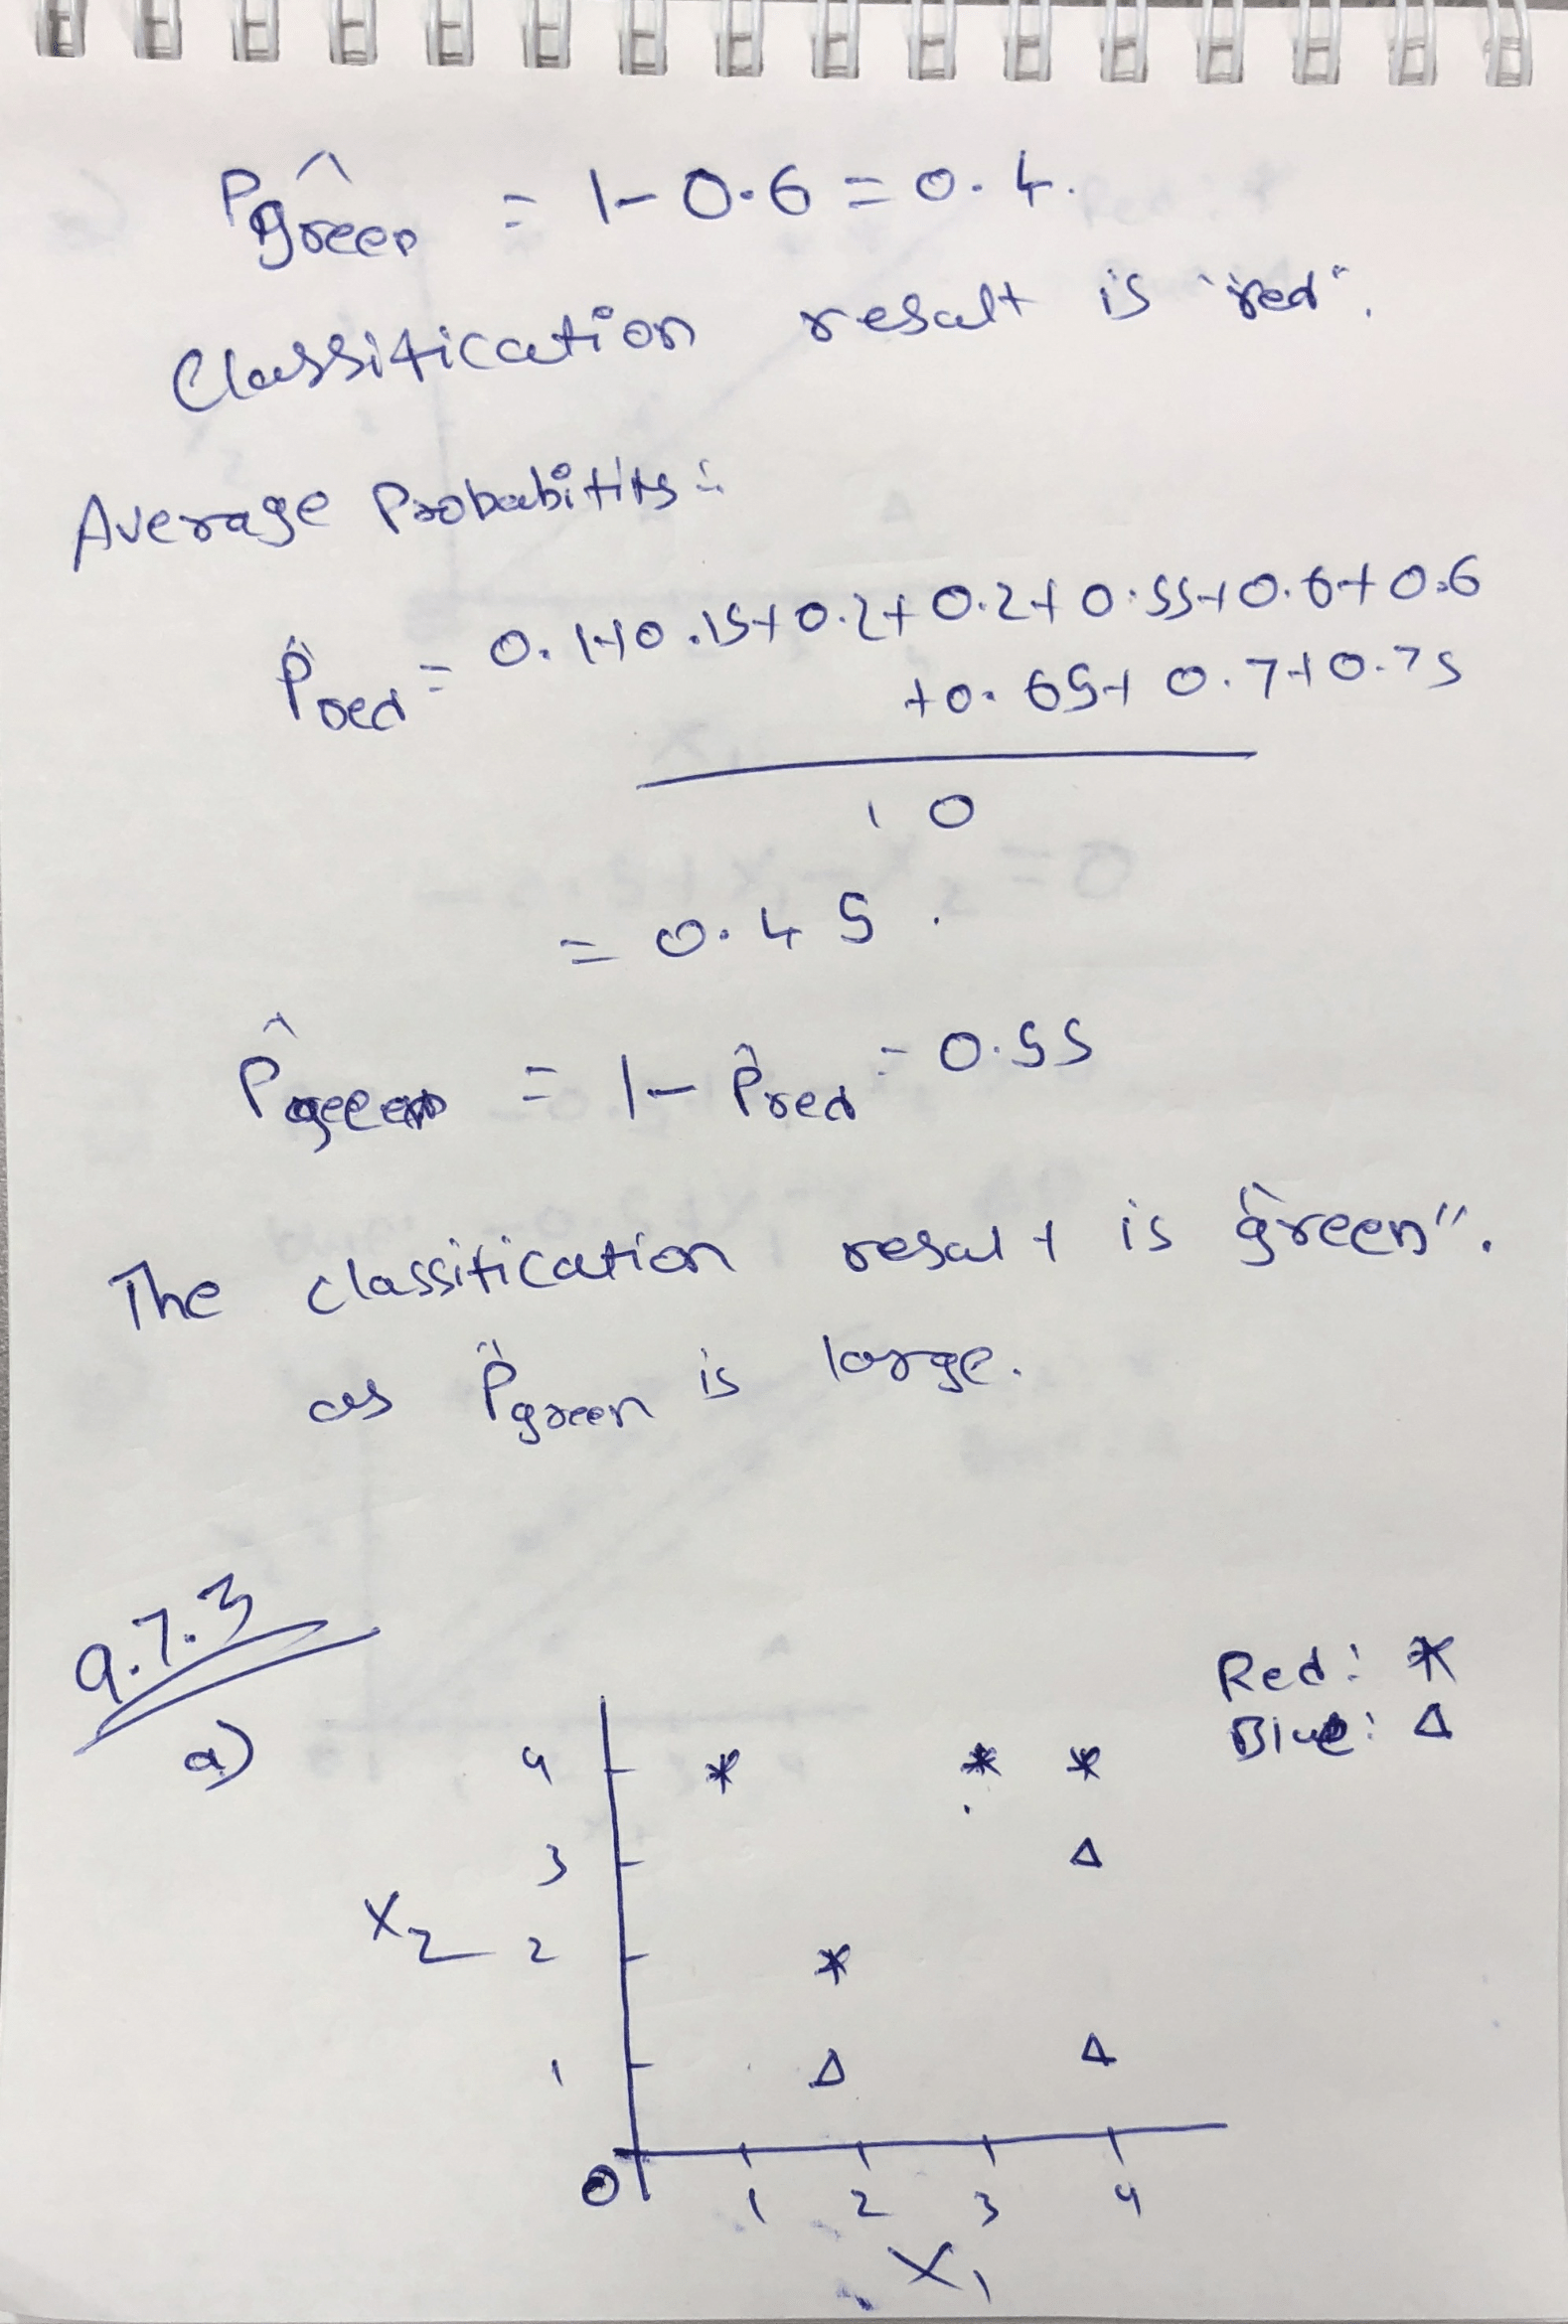 P̂green = 1-0.6 = 0.4.
Classification result is "red".
Average Probabitites:
P̂red = 0.1+0.15+0.2+0.2+0.55+0.6+0.6
+0.65+0.7+0.75
10
= 0.45.
P̂green = 1- P̂red = 0.55
The classification result is "green".
as P̂green is large.
9.7.3
Red: *
a)
Blue: Δ
4
3
X2
2
1
0
1 2 3 4
X1